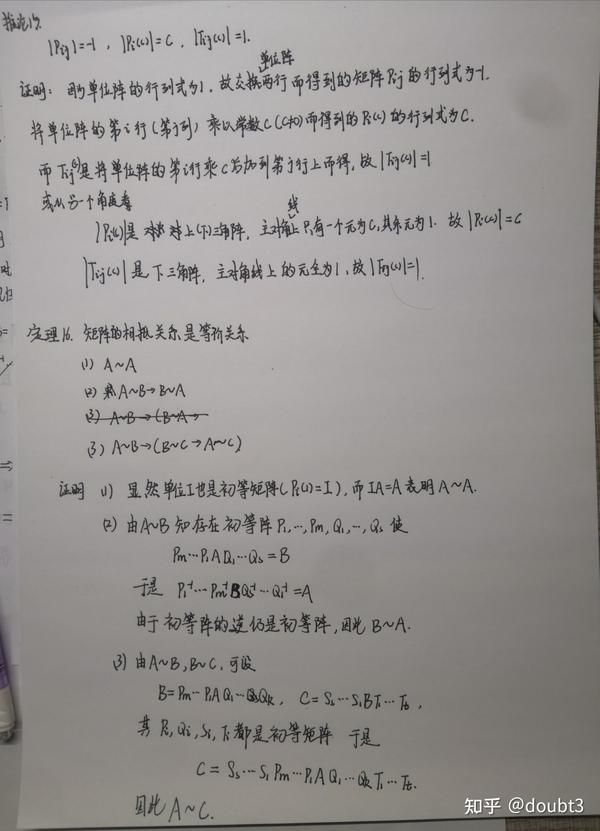 推论15.
|Pij|=-1, |Pi(c)|=C, |Tij(c)|=1.
单位阵
证明: 因为单位阵的行列式为1, 故交换两行而得到的矩阵Pij的行列式为-1.
将单位阵的第i行(第j列)乘以常数C(C≠0)而得到的Pi(c)的行列式为C.
而Tij(c)是将单位阵的第i行乘C后加到第j行上而得, 故|Tij(c)|=1
或从另一个角度看
线
|Pi(c)|是 上(下)三角阵, 主对角上 有一个元为C, 其余元为1. 故|Pi(c)|=C
|Tij(c)|是下三角阵, 主对角线上的元全为1, 故|Tij(c)|=1.
定理16. 矩阵的相抵关系是等价关系
(1) A~A
(2) A~B→B~A
(3) A~B→(B~A→
(3) A~B→(B~C→A~C)
证明 (1) 显然单位I也是初等矩阵(Pi(1)=I), 而IA=A表明A~A.
(2) 由A~B知存在初等阵P₁,…,Pm,Q₁,…,Qs使
Pm…P₁AQ₁…Qs=B
于是 P₁⁻¹…Pm⁻¹BQs⁻¹…Q₁⁻¹=A
由于初等阵的逆仍是初等阵, 因此B~A.
(3) 由A~B, B~C, 可设
B=Pm…P₁AQ₁…Qk, C=Ss…S₁BT₁…Tt,
其Pi,Qi,Si,Ti都是初等矩阵 于是
C=Ss…S₁Pm…P₁AQ₁…QkT₁…Tt.
因此A~C.
知乎 @doubt3